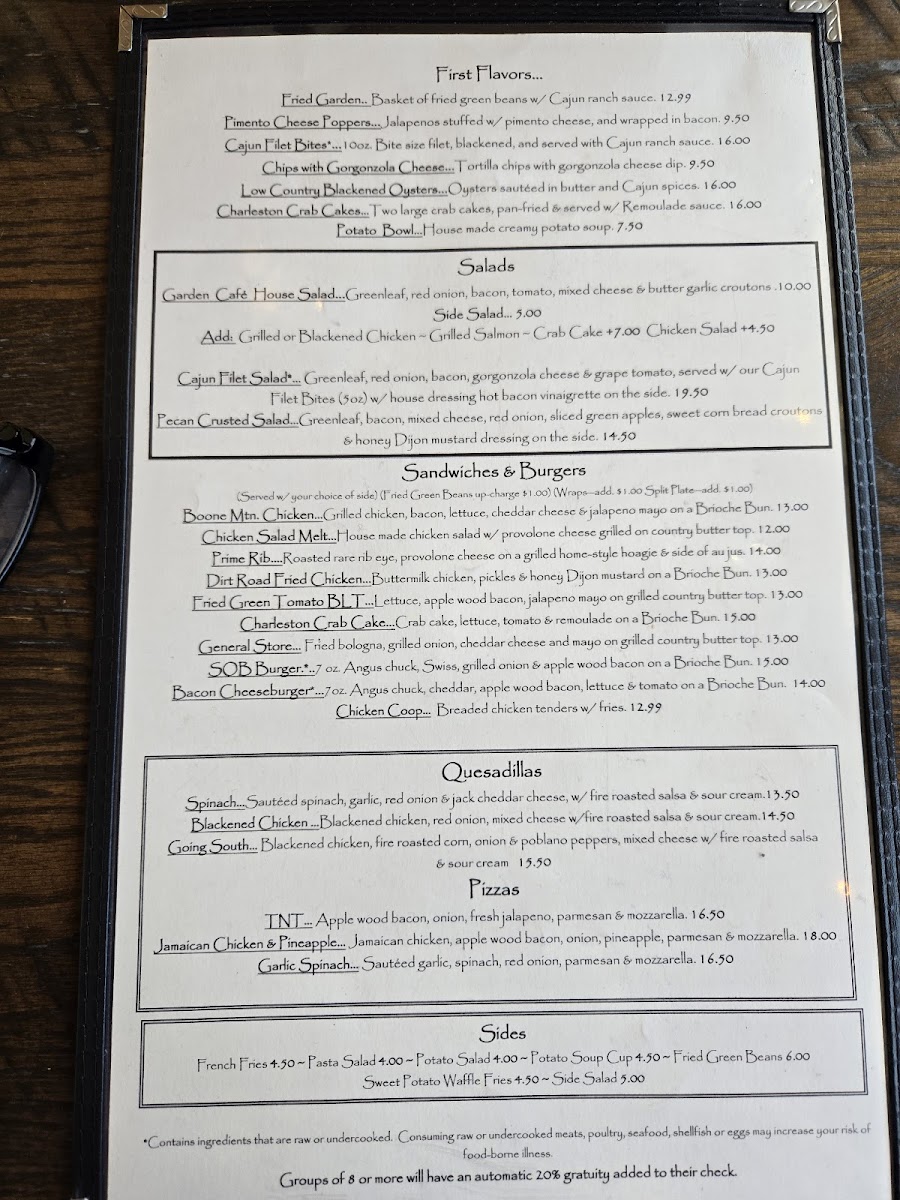 First Flavors...
Fried Garden.. Basket of fried green beans w/ Cajun ranch sauce. 12.99
Pimento Cheese Poppers... Jalapenos stuffed w/ pimento cheese, and wrapped in bacon. 9.50
Cajun Filet Bites*...10oz. Bite size filet, blackened, and served with Cajun ranch sauce. 16.00
Chips with Gorgonzola Cheese...Tortilla chips with gorgonzola cheese dip. 9.50
Low Country Blackened Oysters...Oysters sautéed in butter and Cajun spices. 16.00
Charleston Crab Cakes...Two large crab cakes, pan-fried & served w/ Remoulade sauce. 16.00
Potato Bowl...House made creamy potato soup. 7.50
Salads
Garden Café House Salad...Greenleaf, red onion, bacon, tomato, mixed cheese & butter garlic croutons .10.00
Side Salad... 5.00
Add: Grilled or Blackened Chicken ~ Grilled Salmon ~ Crab Cake +7.00 Chicken Salad +4.50
Cajun Filet Salad*... Greenleaf, red onion, bacon, gorgonzola cheese & grape tomato, served w/ our Cajun
Filet Bites (5oz) w/ house dressing hot bacon vinaigrette on the side. 19.50
Pecan Crusted Salad...Greenleaf, bacon, mixed cheese, red onion, sliced green apples, sweet corn bread croutons
& honey Dijon mustard dressing on the side. 14.50
Sandwiches & Burgers
(Served w/ your choice of side) (Fried Green Beans up-charge $1.00) (Wraps--add. $1.00 Split Plate--add. $1.00)
Boone Mtn. Chicken...Grilled chicken, bacon, lettuce, cheddar cheese & jalapeno mayo on a Brioche Bun. 13.00
Chicken Salad Melt...House made chicken salad w/ provolone cheese grilled on country butter top. 12.00
Prime Rib....Roasted rare rib eye, provolone cheese on a grilled home-style hoagie & side of au jus. 14.00
Dirt Road Fried Chicken...Buttermilk chicken, pickles & honey Dijon mustard on a Brioche Bun. 13.00
Fried Green Tomato BLT...Lettuce, apple wood bacon, jalapeno mayo on grilled country butter top. 13.00
Charleston Crab Cake...Crab cake, lettuce, tomato & remoulade on a Brioche Bun. 15.00
General Store... Fried bologna, grilled onion, cheddar cheese and mayo on grilled country butter top. 13.00
SOB Burger.*..7 oz. Angus chuck, Swiss, grilled onion & apple wood bacon on a Brioche Bun. 15.00
Bacon Cheeseburger*...7oz. Angus chuck, cheddar, apple wood bacon, lettuce & tomato on a Brioche Bun. 14.00
Chicken Coop... Breaded chicken tenders w/ fries. 12.99
Quesadillas
Spinach...Sautéed spinach, garlic, red onion & jack cheddar cheese, w/ fire roasted salsa & sour cream.13.50
Blackened Chicken ...Blackened chicken, red onion, mixed cheese w/fire roasted salsa & sour cream.14.50
Going South... Blackened chicken, fire roasted corn, onion & poblano peppers, mixed cheese w/ fire roasted salsa
& sour cream 15.50
Pizzas
TNT... Apple wood bacon, onion, fresh jalapeno, parmesan & mozzarella. 16.50
Jamaican Chicken & Pineapple... Jamaican chicken, apple wood bacon, onion, pineapple, parmesan & mozzarella. 18.00
Garlic Spinach... Sautéed garlic, spinach, red onion, parmesan & mozzarella. 16.50
Sides
French Fries 4.50 ~ Pasta Salad 4.00 ~ Potato Salad 4.00 ~ Potato Soup Cup 4.50 ~ Fried Green Beans 6.00
Sweet Potato Waffle Fries 4.50 ~ Side Salad 5.00
*Contains ingredients that are raw or undercooked. Consuming raw or undercooked meats, poultry, seafood, shellfish or eggs may increase your risk of
food-borne illness.
Groups of 8 or more will have an automatic 20% gratuity added to their check.